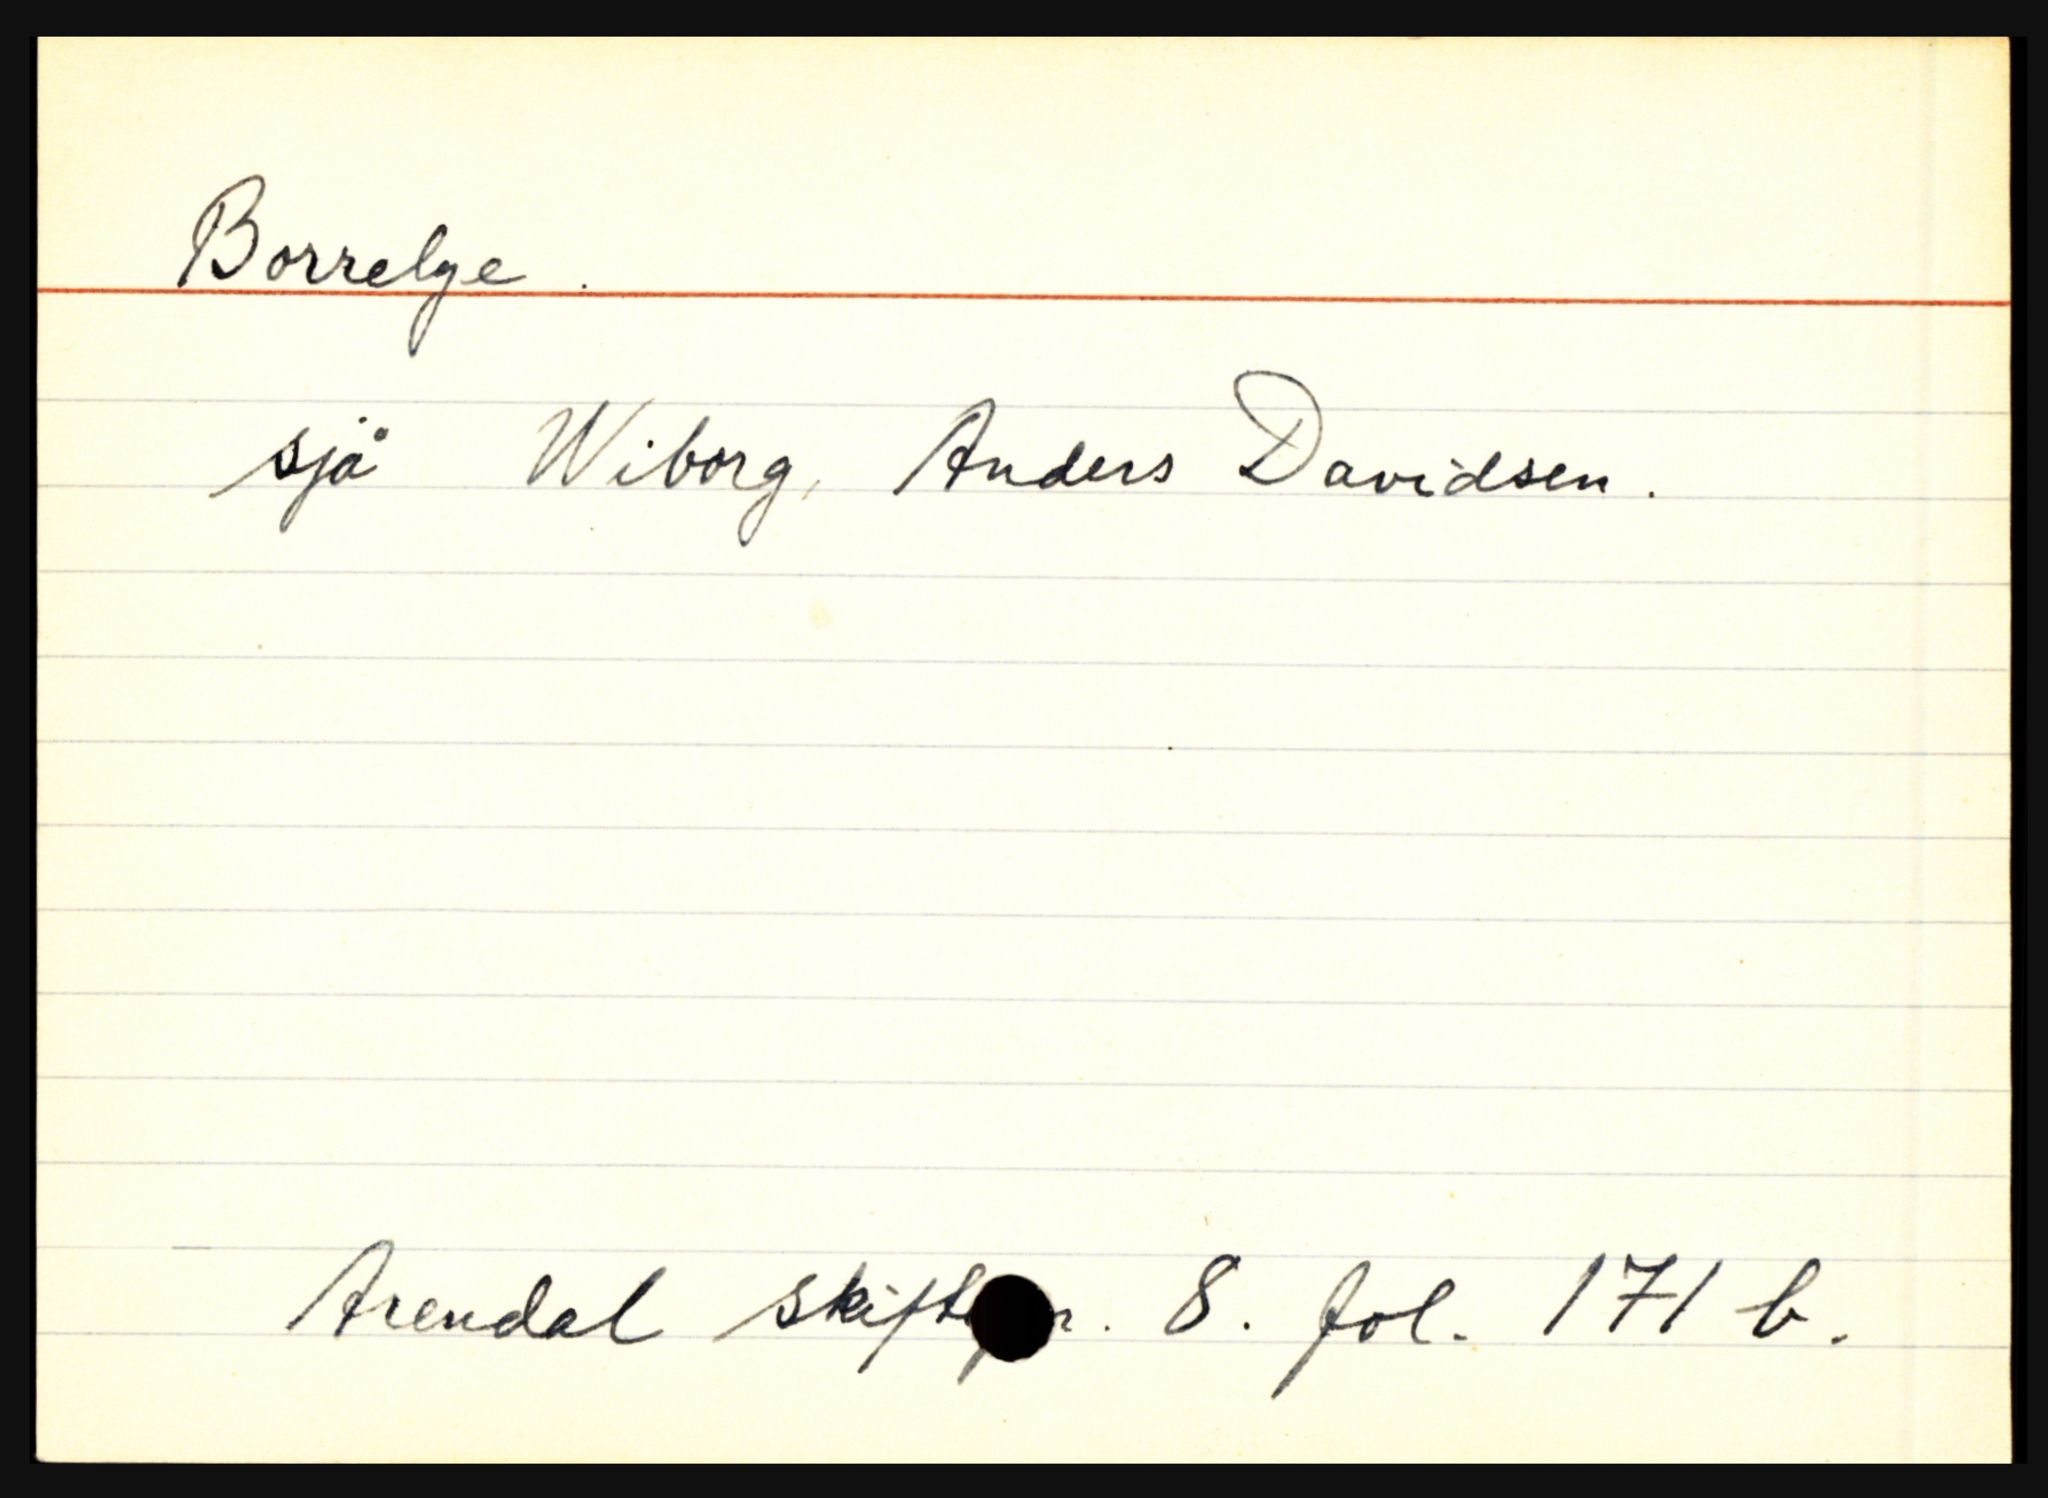 Borrelge.
sjå Wiborg, Anders Davidsen.
Arendal 8. fol. 171 b.